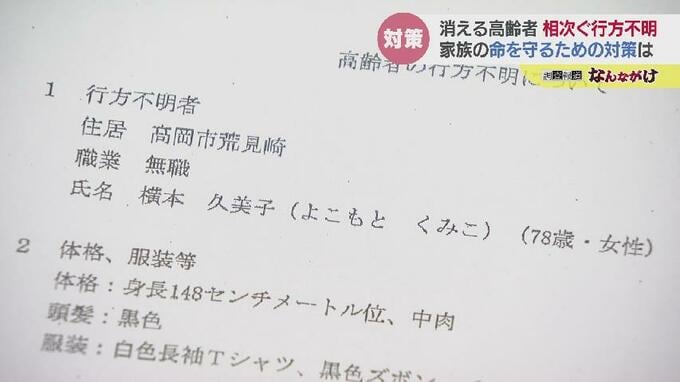 対策
消える高齢者 相次ぐ行方不明
家族の命を守るための対策は
なんながけ
高齢者の行方不明について
1 行方不明者
住居 高岡市荒見崎
職業 無職
氏名 横本 久美子(よこもと くみこ)(78歳・女性)
2 体格、服装等
体格:身長148センチメートル位、中肉
頭髪:黒色
服装:白色長袖Tシャツ、黒色ズボン